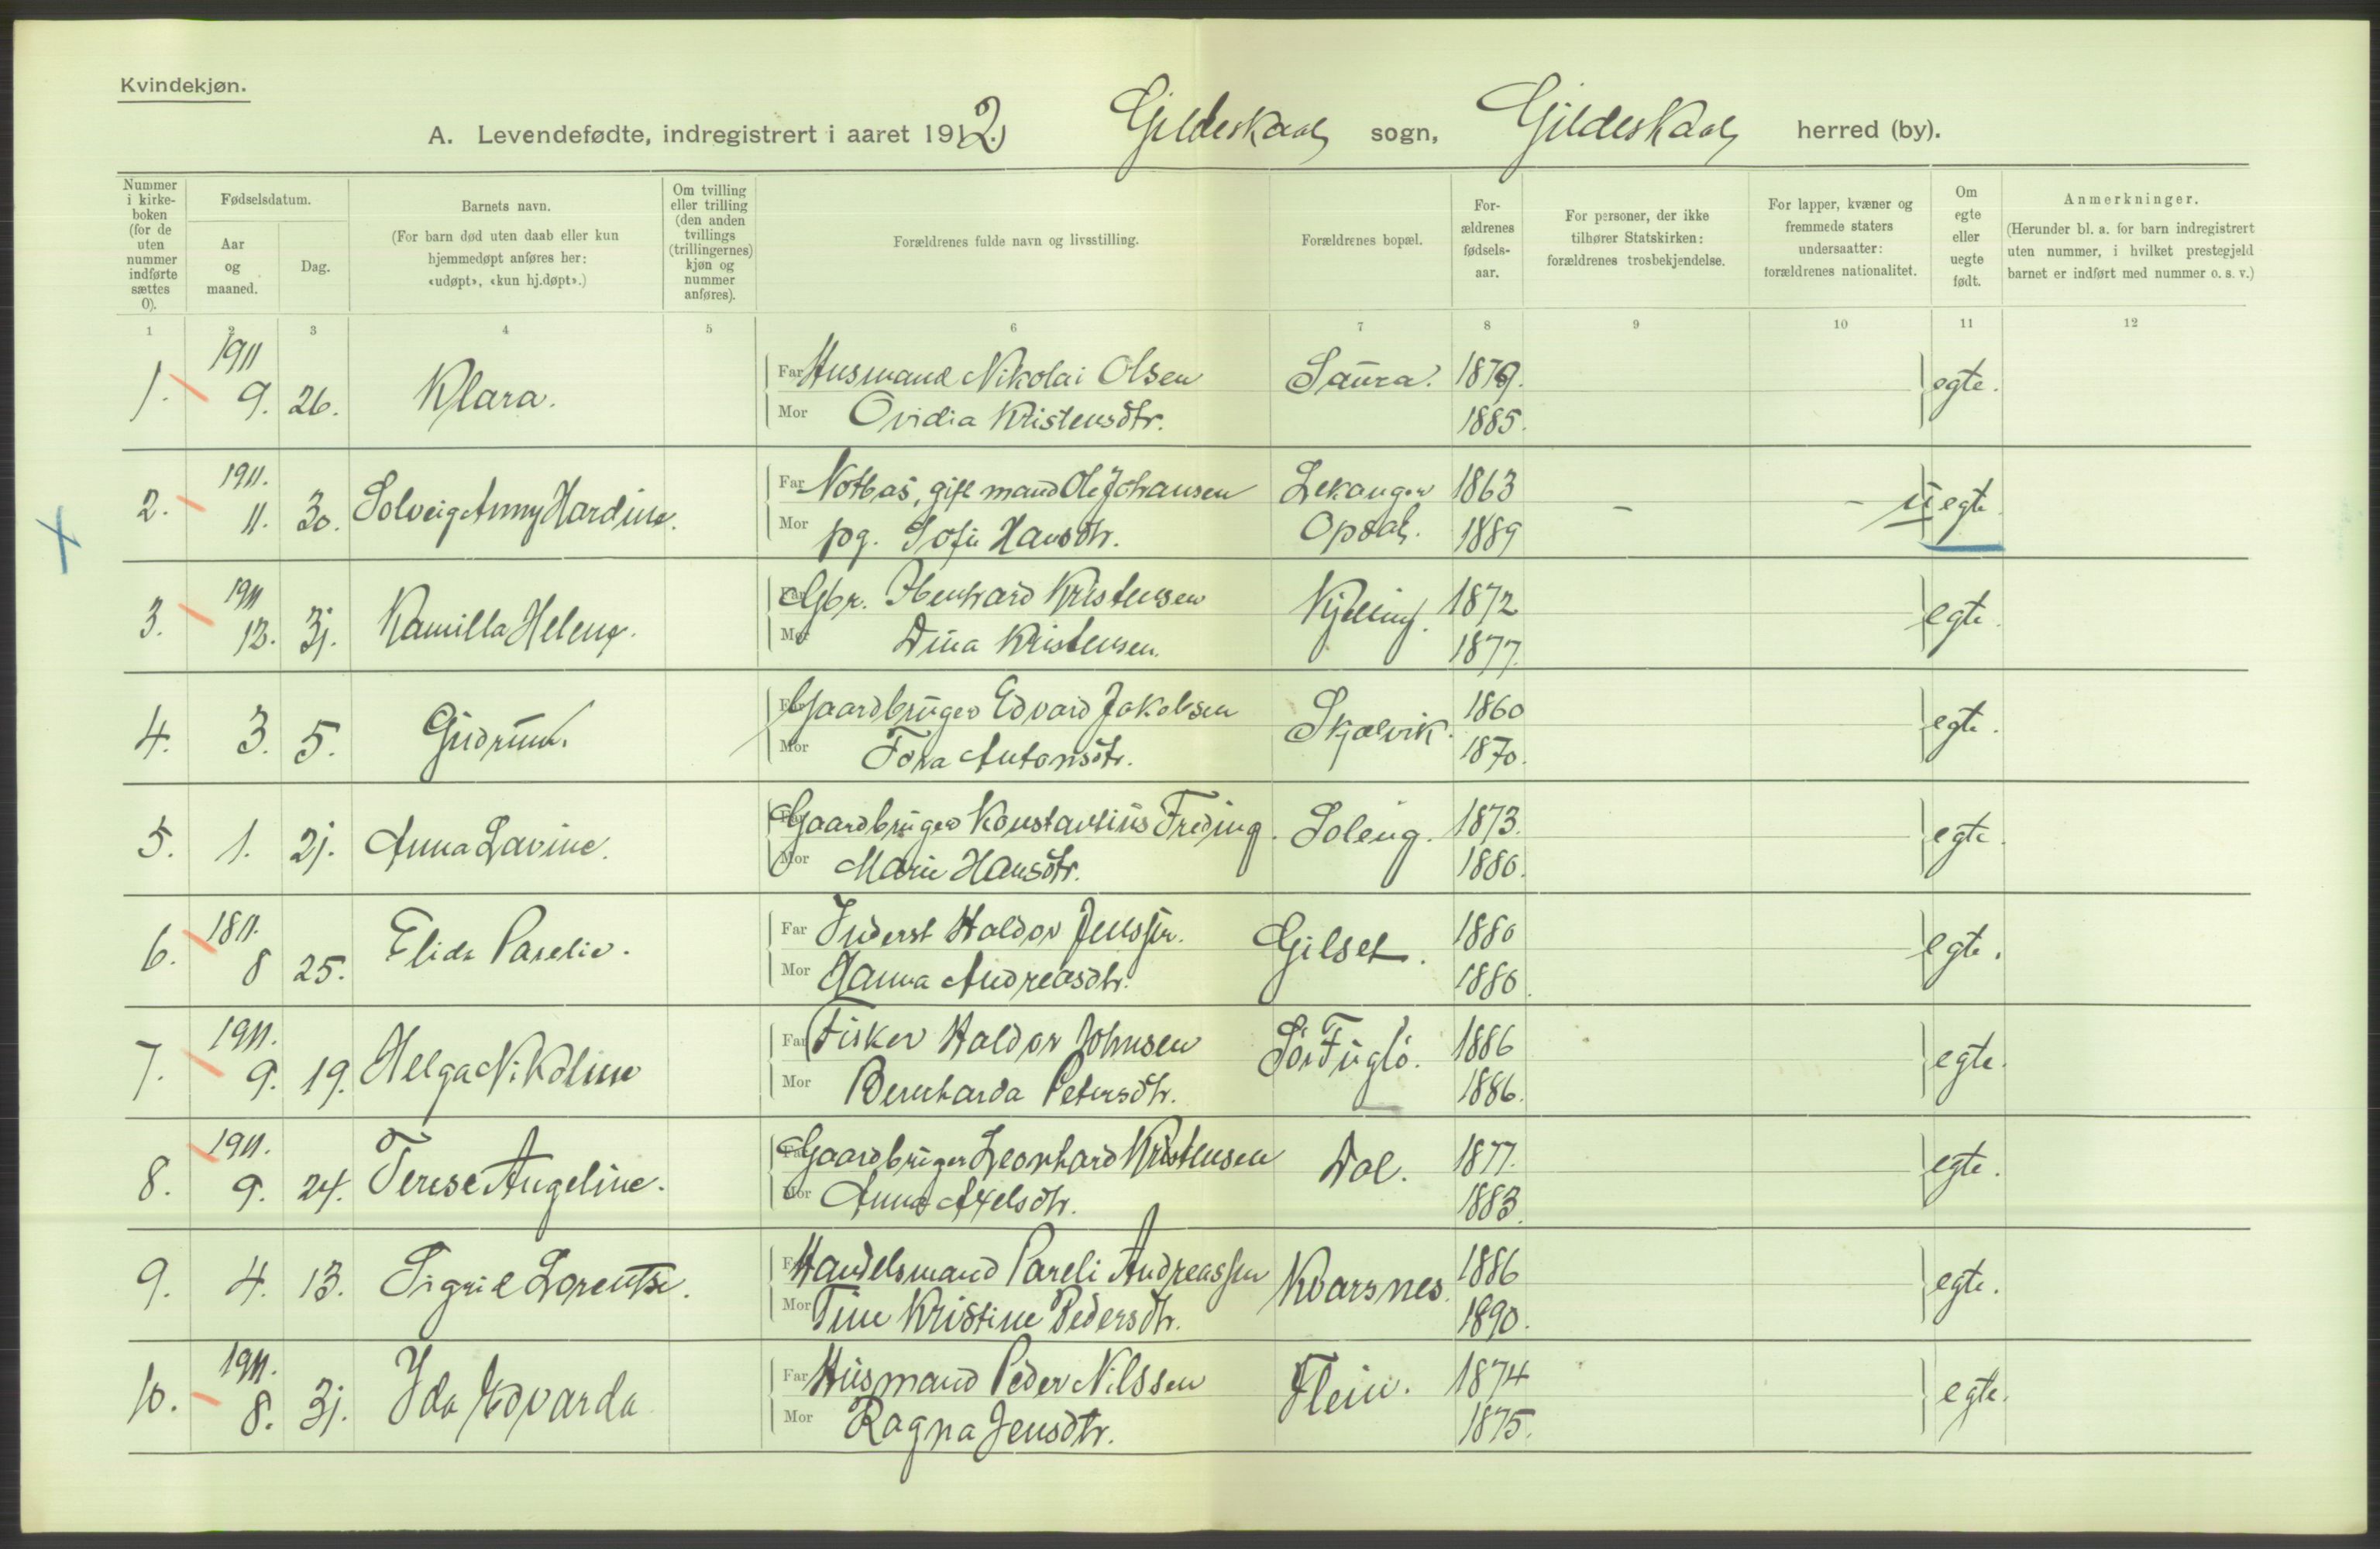 Kvindekjøn.
A. Levendefødte, indregistrert i aaret 1912. Gildeskaal sogn, Gildeskaal herred (by).
Nummer i kirkeboken (for de uten nummer indførte sættes 0).
Fødselsdatum.
Aar og maaned.
Dag.
Barnets navn.
(For barn død uten daab eller kun hjemmedøpt anføres her: «udøpt», «kun hj.døpt».)
Om tvilling eller trilling (den anden tvillings (trillingernes) kjøn og nummer anføres).
Forældrenes fulde navn og livsstilling.
Forældrenes bopæl.
Forældrenes fødselsaar.
For personer, der ikke tilhører Statskirken: forældrenes trosbekjendelse.
For lapper, kvæner og fremmede staters undersaatter: forældrenes nationalitet.
Om egte eller uegte født.
Anmerkninger.
(Herunder bl. a. for barn indregistrert uten nummer, i hvilket prestegjeld barnet er indført med nummer o. s. v.)
1 2 3 4 5 6 7 8 9 10 11 12
1. 1911 9. 26. Klara. Far Husmand Nikolai Olsen Saura. 1879. egte.
Mor Ovidia Kristensdtr. 1885.
2. 1911. 11. 30. Solveig Anny Hardine. Far Notbas, gift mand Ole Johansen Lekanger 1863 - - uegte
Mor pg. Sofie Hansdtr. Opsal. 1889
3. 1911 12. 31. Kamilla Helene. Far Gbr. Kristensen Kjelling. 1872 egte.
Mor Dina Kristensen. 1877.
4. 3. 5. Gudrun. Far Gaardbruger Edvard Jakobsen Skjælvik. 1860 egte.
Mor Tora Antonsdtr. 1870.
5. 1. 21. Anna Lavine. Far Gaardbruger Konstantius Freding. Soleng. 1873. egte.
Mor Marie Hansdtr. 1880.
6. 1811. 8 25. Elida Parelie. Far Inderst Haldor Jenssen. Gilset. 1880 egte.
Mor Hanna Andreasdtr. 1880.
7. 1911. 9. 19. Helga Nikoline Far Fisker Haldor Johnsen Sør Fuglö. 1886 egte.
Mor Bernharda Petersdtr. 1886.
8. 1911. 9. 24. Terese Angeline. Far Gaardbruger Leonhard Kristensen Dal. 1877. egte.
Mor Anna Axelsdtr. 1883.
9. 4. 13. Sigrid Lorentse. Far Handelsmand Pareli Andreassen Kvarsnes. 1886 egte.
Mor Tine Kristine Pedersdtr. 1890.
10. 1911. 8. 31. Ida Edvarda Far Husmand Peder Nilssen Flein. 1874 egte.
Mor Ragna Jensdtr. 1875.